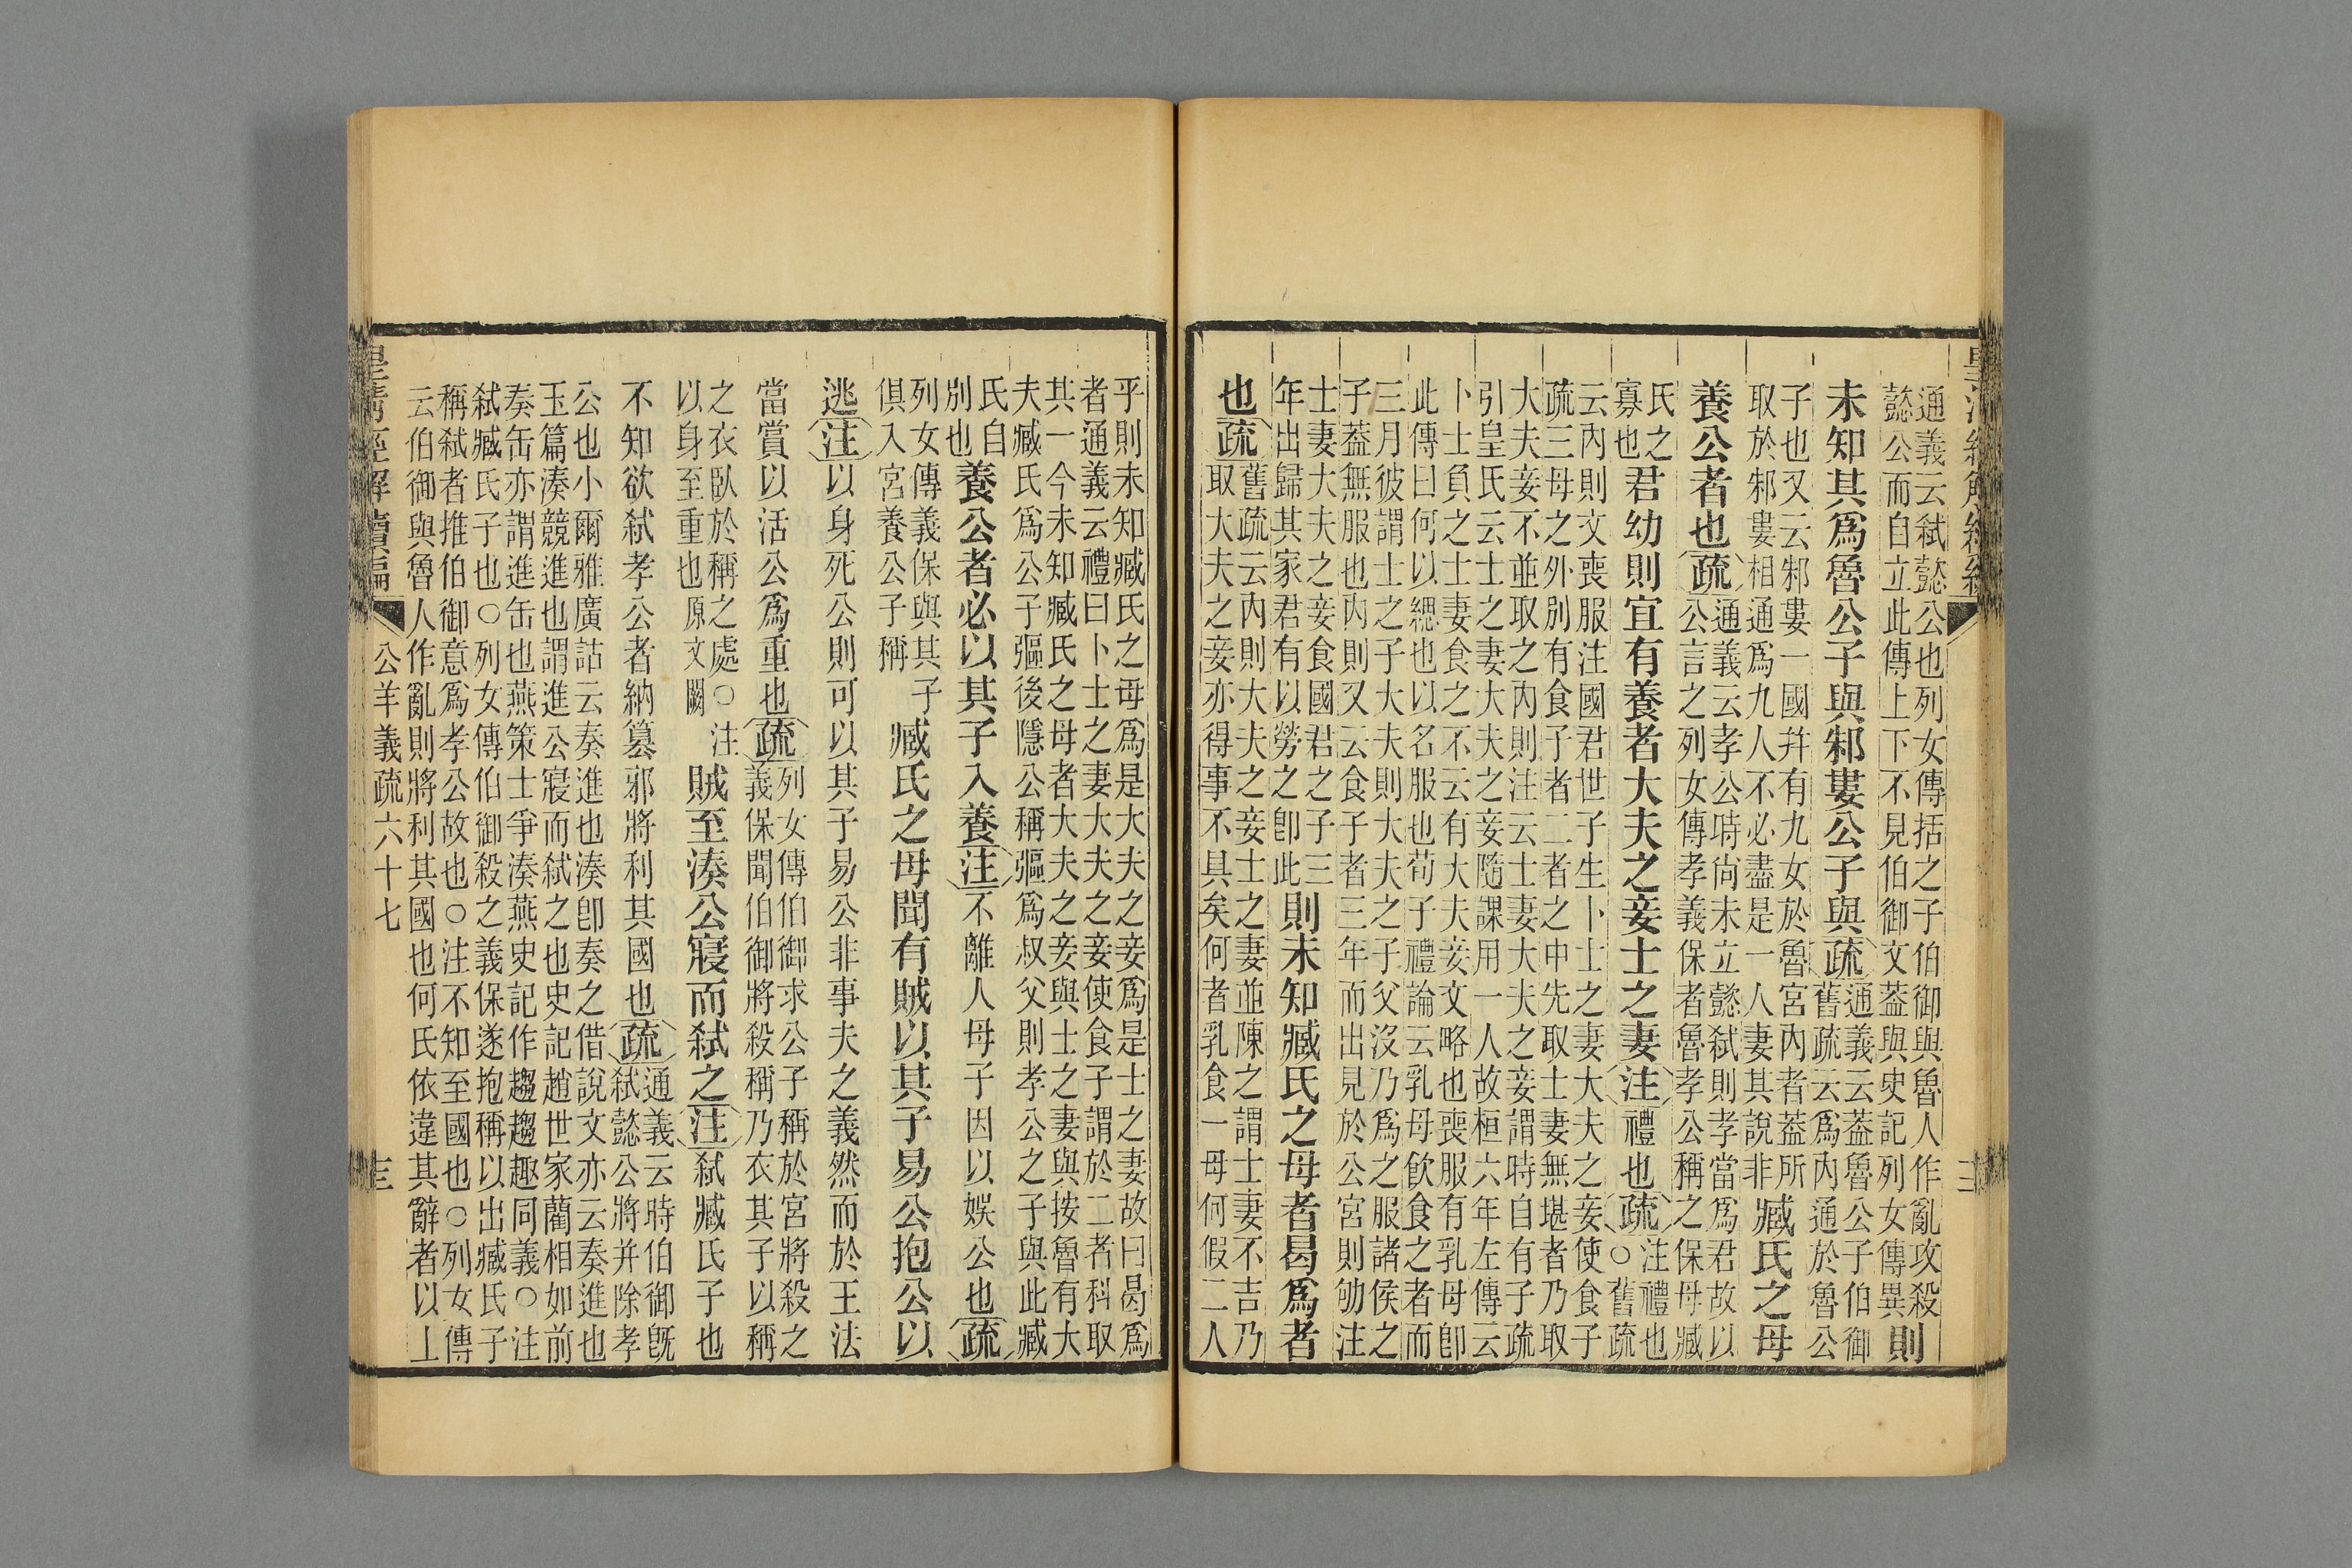 通義云弑懿公也列女傳括之子伯御與魯人作亂攻殺
懿公而自立此傳上下不見伯御文葢與史記列女傳異則
未知其爲魯公子與邾婁公子與疏通義云葢魯公子伯御
舊疏云爲內通於魯公
子也又云邾婁一國幷有九女於魯宮內者葢所
取於邾婁相通爲九人不必盡是一人妻其說非臧氏之母
養公者也疏通義云孝公時尚未立懿弑則孝當爲君故以
公言之列女傳孝義保者魯孝公稱之保母臧
氏之
寡也君幼則宜有養者大夫之妾士之妻注禮也疏注禮也
○舊疏
云內則文喪服注國君世子生卜士之妻大夫之妾使食子
疏三母之外別有食子者二者之中先取士妻無堪者乃取
大夫妾不並取之內則注云士妻大夫之妾謂時自有子疏
引皇氏云士之妻大夫之妾隨課用一人故桓六年左傳云
卜士負之士妻食之不云有大夫妾文略也喪服有乳母卽
此傳曰何以緦也以名服也荀子禮論云乳母飮食之者而
三月彼謂士之子大夫則大夫之子父沒乃爲之服諸侯之
子葢無服也內則又云食子者三年而出見於公宮則劬注
士妻大夫之妾食國君之子三
年出歸其家君有以勞之卽此則未知臧氏之母者曷爲者
也疏舊疏云內則大夫之妾士之妻並陳之謂士妻不吉乃
取大夫之妾亦得事不具矣何者乳食一母何假二人
乎則未知臧氏之母爲是大夫之妾爲是士之妻故曰曷爲
者通義云禮曰卜士之妻大夫之妾使食子謂於二者科取
其一今未知臧氏之母者大夫之妾與士之妻與按魯有大
夫臧氏爲公子彄後隱公稱彄爲叔父則孝公之子與此臧
氏自
別也養公者必以其子入養注不離人母子因以娛公也疏
列女傳義保與其子
俱入宮養公子稱臧氏之母聞有賊以其子易公抱公以
逃注以身死公則可以其子易公非事夫之義然而於王法
當賞以活公爲重也疏列女傳伯御求公子稱於宮將殺之
義保聞伯御將殺稱乃衣其子以稱
之衣臥於稱之處○注
以身至重也原文闕賊至湊公寢而弑之注弑臧氏子也
不知欲弑孝公者納篡邪將利其國也疏通義云時伯御旣
弑懿公將并除孝
公也小爾雅廣詁云奏進也湊卽奏之借說文亦云奏進也
玉篇湊競進也謂進公寢而弑之也史記趙世家藺相如前
奏缶亦謂進缶也燕策士爭湊燕史記作趨趨趣同義○注
弑臧氏子也○列女傳伯御殺之義保遂抱稱以出臧氏子
稱弑者推伯御意爲孝公故也○注不知至國也○列女傳
云伯御與魯人作亂則將利其國也何氏依違其辭者以上
皇清經解續編
公羊義疏六十七